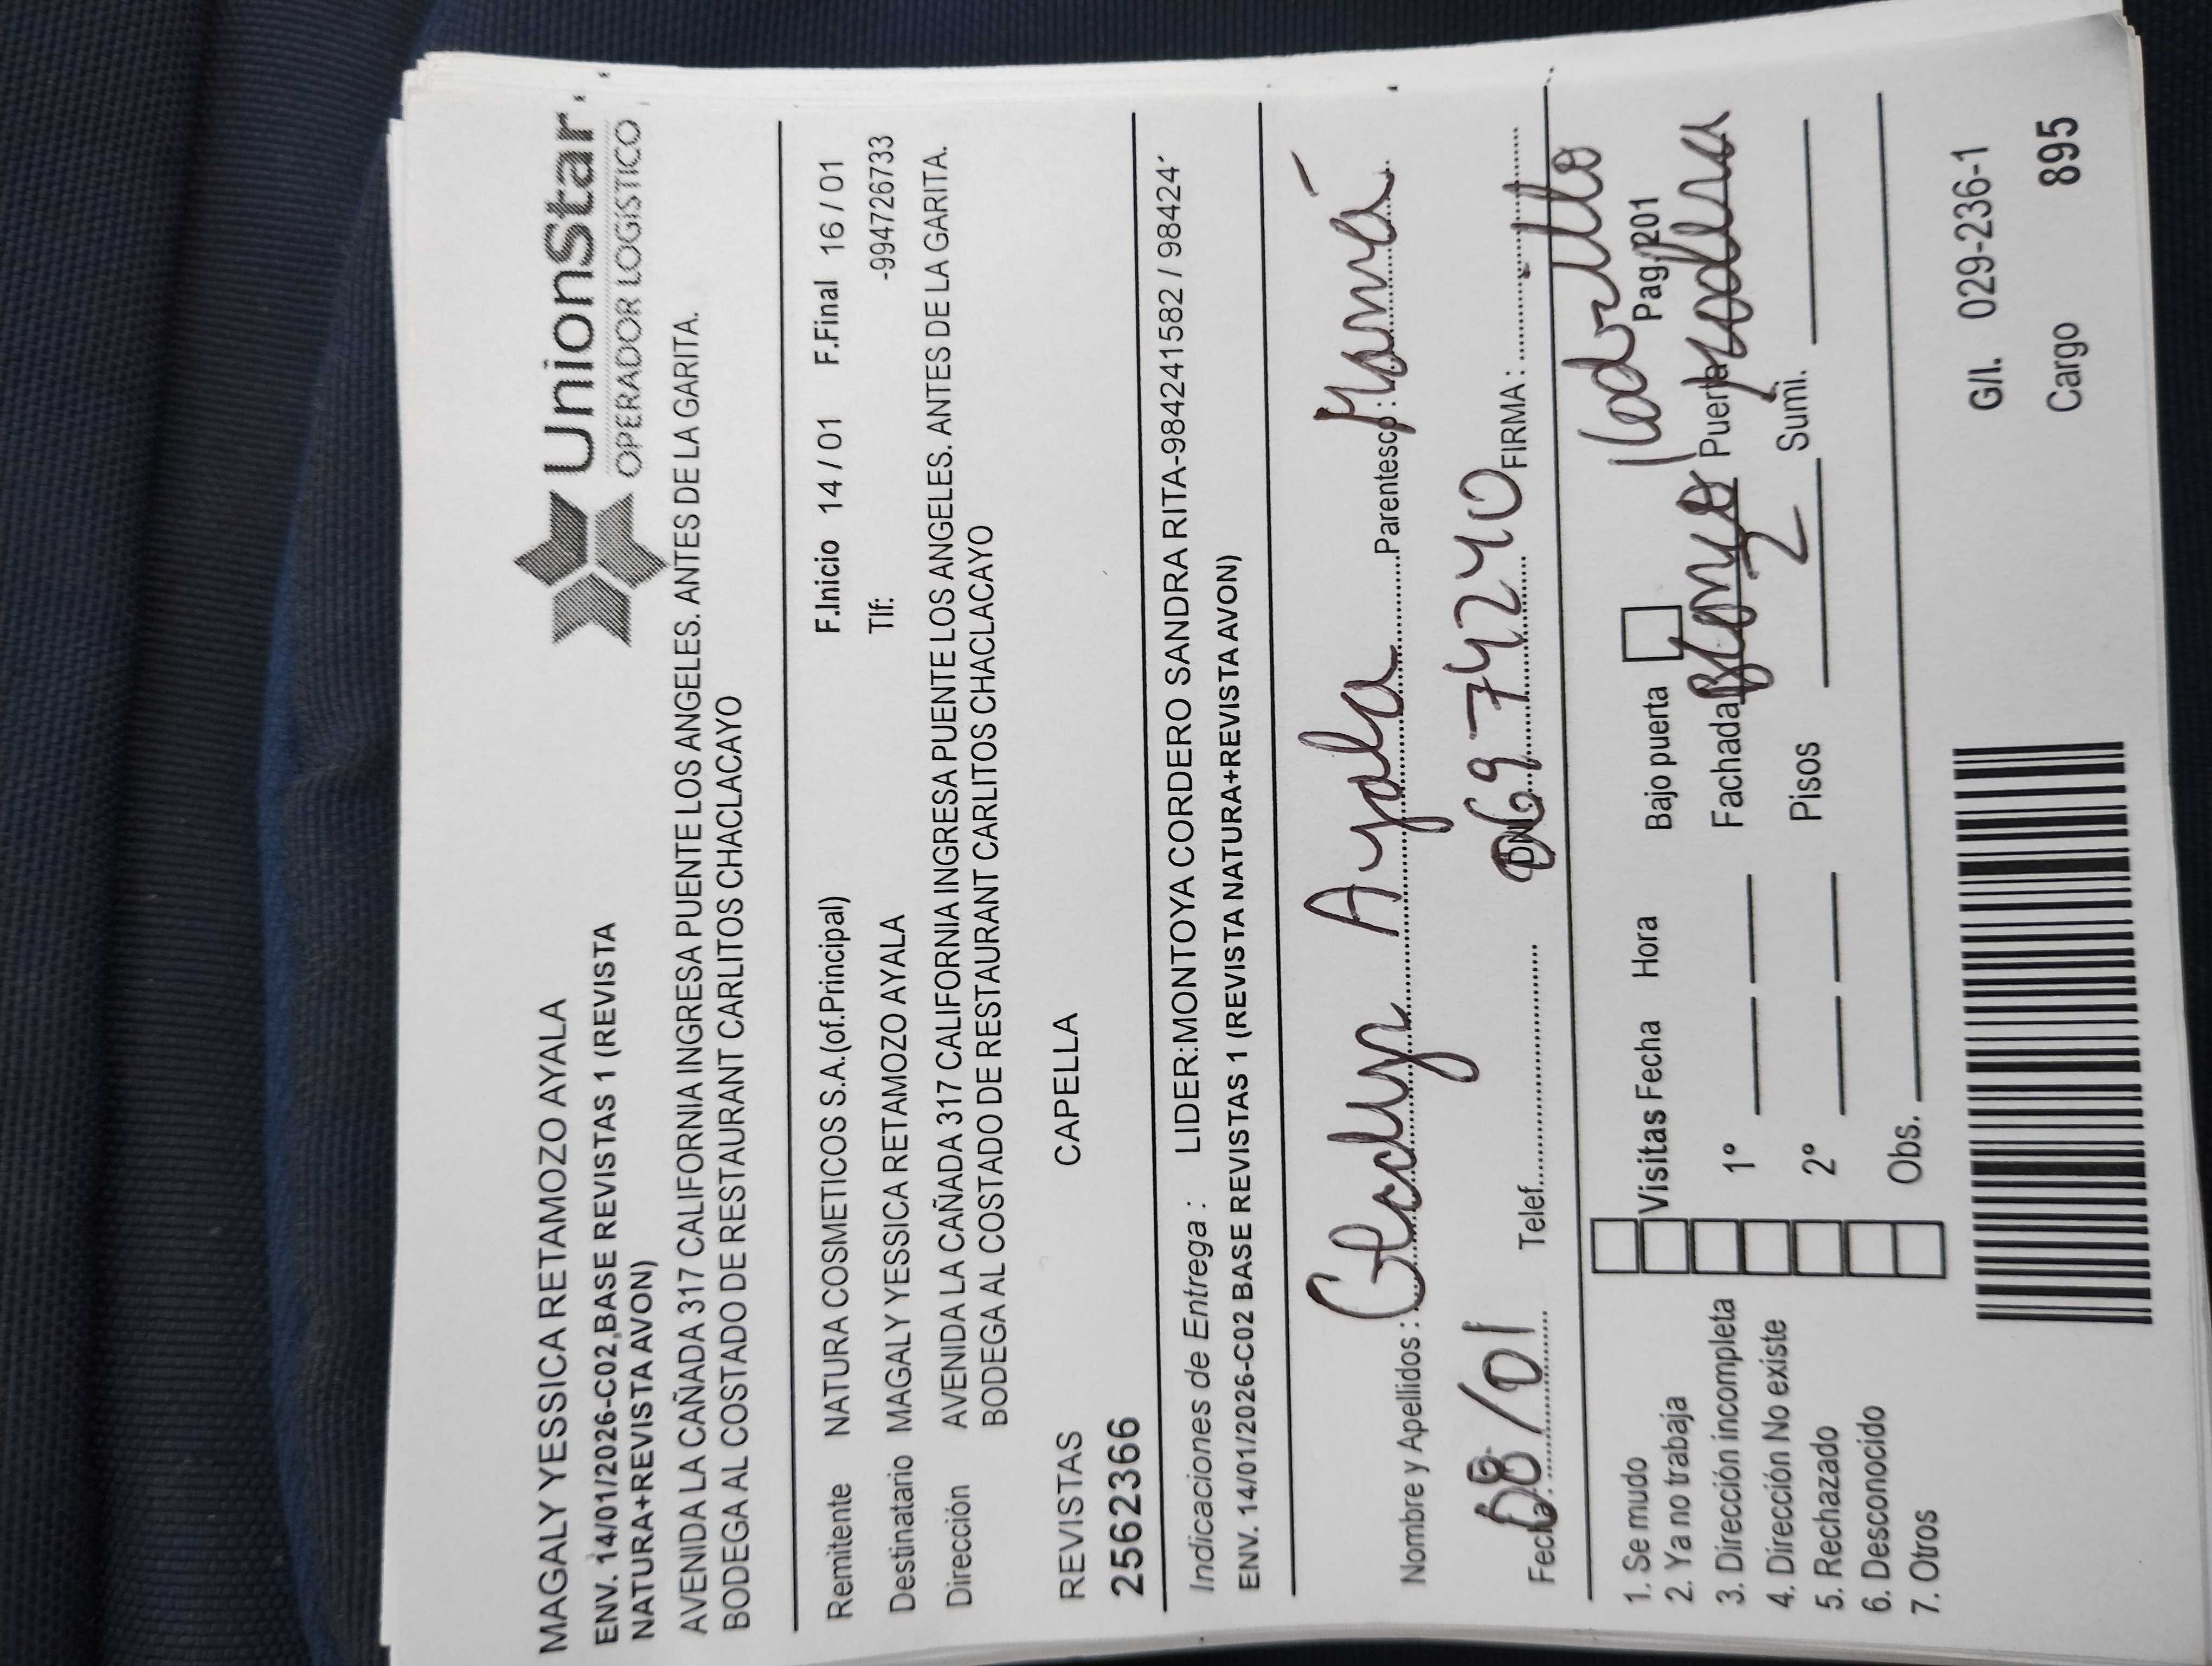 UnionStar
OPERADOR LOGÍSTICO
MAGALY YESSICA RETAMOZO AYALA
ENV. 14/01/2026-C02 BASE REVISTAS 1 (REVISTA
NATURA+REVISTA AVON)
AVENIDA LA CAÑADA 317 CALIFORNIA INGRESA PUENTE LOS ANGELES. ANTES DE LA GARITA.
BODEGA AL COSTADO DE RESTAURANT CARLITOS CHACLACAYO
Remitente NATURA COSMETICOS S.A.(of.Principal) F.Inicio 14 / 01 F.Final 16 / 01
Destinatario MAGALY YESSICA RETAMOZO AYALA Tlf: -994726733
Dirección AVENIDA LA CAÑADA 317 CALIFORNIA INGRESA PUENTE LOS ANGELES. ANTES DE LA GARITA.
BODEGA AL COSTADO DE RESTAURANT CARLITOS CHACLACAYO
REVISTAS CAPELLA
2562366
Indicaciones de Entrega : LIDER:MONTOYA CORDERO SANDRA RITA-984241582 / 98424
ENV. 14/01/2026-C02 BASE REVISTAS 1 (REVISTA NATURA+REVISTA AVON)
Nombre y Apellidos : Ayala Parentesco : Mamá
Fecha /01 Telef. 6974240 FIRMA :
1. Se mudo
2. Ya no trabaja
3. Dirección incompleta
4. Dirección No existe
5. Rechazado
6. Desconocido
7. Otros
Visitas Fecha Hora
1°
2°
Obs.
Bajo puerta Ladrillo
Pag/201
Fachada Puerta
Pisos 2 Sumi.
G/I. 029-236-1
Cargo 895